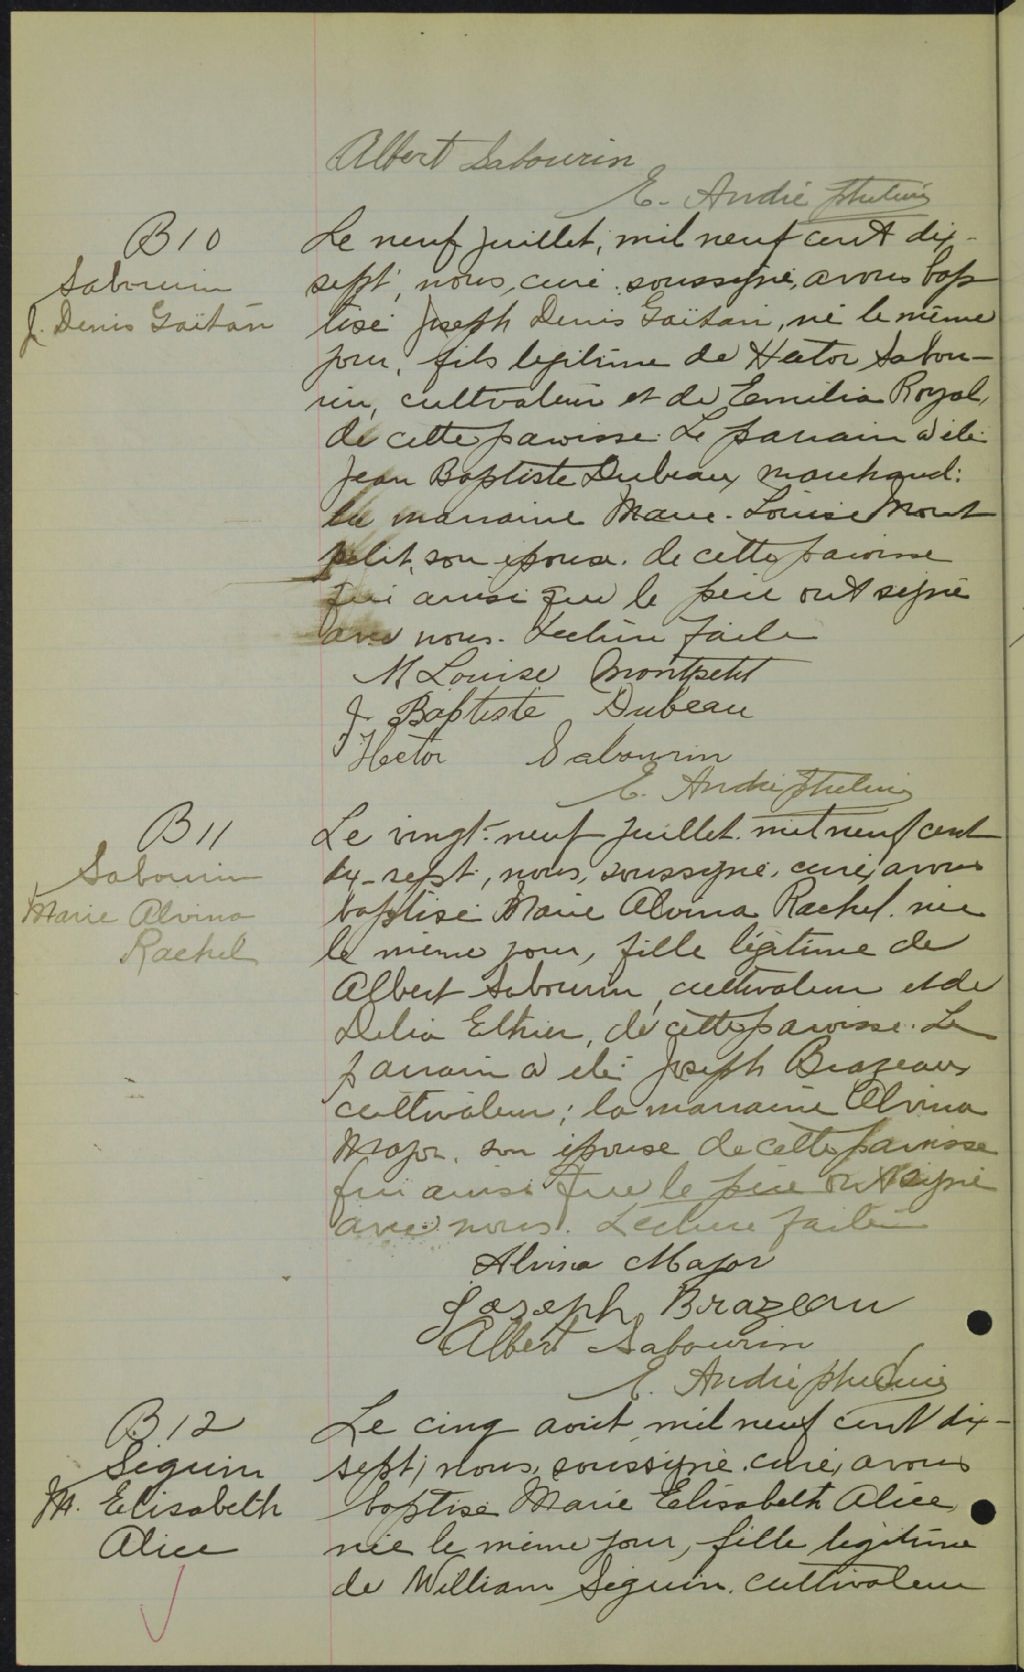 Albert Sabourin
E. André ptre curé
B10
Sabourin
J. Denis Gaïtan
Le neuf juillet, mil neuf cent dix-
sept, nous, curé soussigné, avons bap
tisé Joseph Denis Gaïtan, né le même
jour, fils légitime de Hector Sabou-
rin, cultivateur et de Emilia Royal,
de cette paroisse. Le parrain a été
Jean Baptiste Dubeau, marchand;
la marraine Marie-Louise Mont
petit, son épouse de cette paroisse
qui ainsi que le père ont signé
avec nous. Lecture faite
M Louise Montpetit
J. Baptiste Dubeau
Hector Sabourin
E. André ptre curé
B11
Sabourin
Marie Alvina
Rachel
Le vingt-neuf juillet mil neuf cent
dix-sept, nous, soussigné, curé, avons
baptisé Marie Alvina Rachel, née
le même jour, fille légitime de
Albert Sabourin, cultivateur et de
Delia Ethier, de cette paroisse. Le
parrain a été Joseph Brazeau
cultivateur; la marraine Alvina
Major, son épouse de cette paroisse
qui ainsi que le père ont signé
avec nous. Lecture faite
Alvina Major
Joseph Brazeau
Albert Sabourin
E. André ptre curé
B12
Seguin
M. Elisabeth
Alice
Le cinq août mil neuf cent dix-
sept, nous, soussigné, curé, avons
baptisé Marie Elisabeth Alice,
née le même jour, fille légitime
de William Seguin, cultivateur